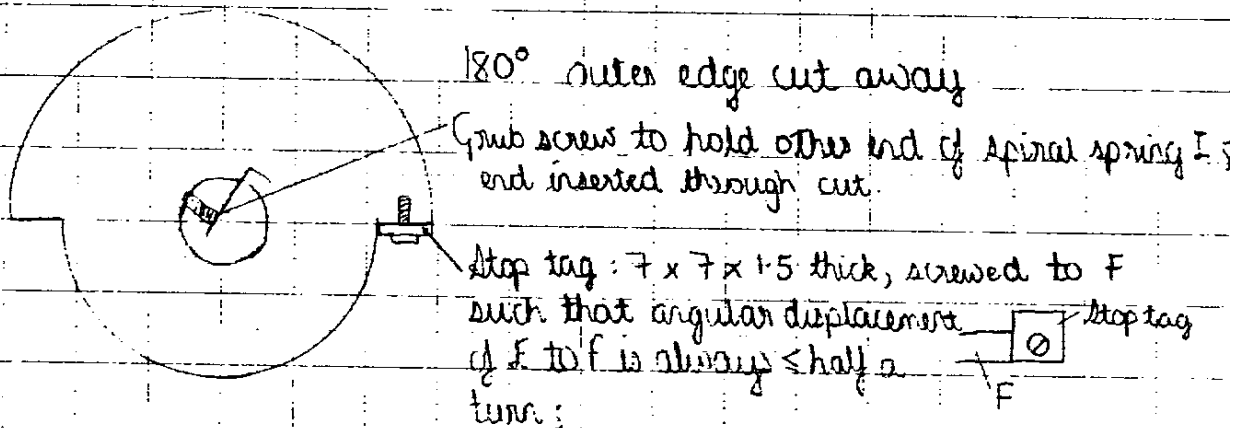 180° outer edge cut away
Grub screw to hold other end of spiral spring I;
end inserted through cut.
Stop tag: 7 x 7 x 1·5 thick, screwed to F
such that angular displacement
of E to F is always ≤ half a
turn:
Stop tag
F